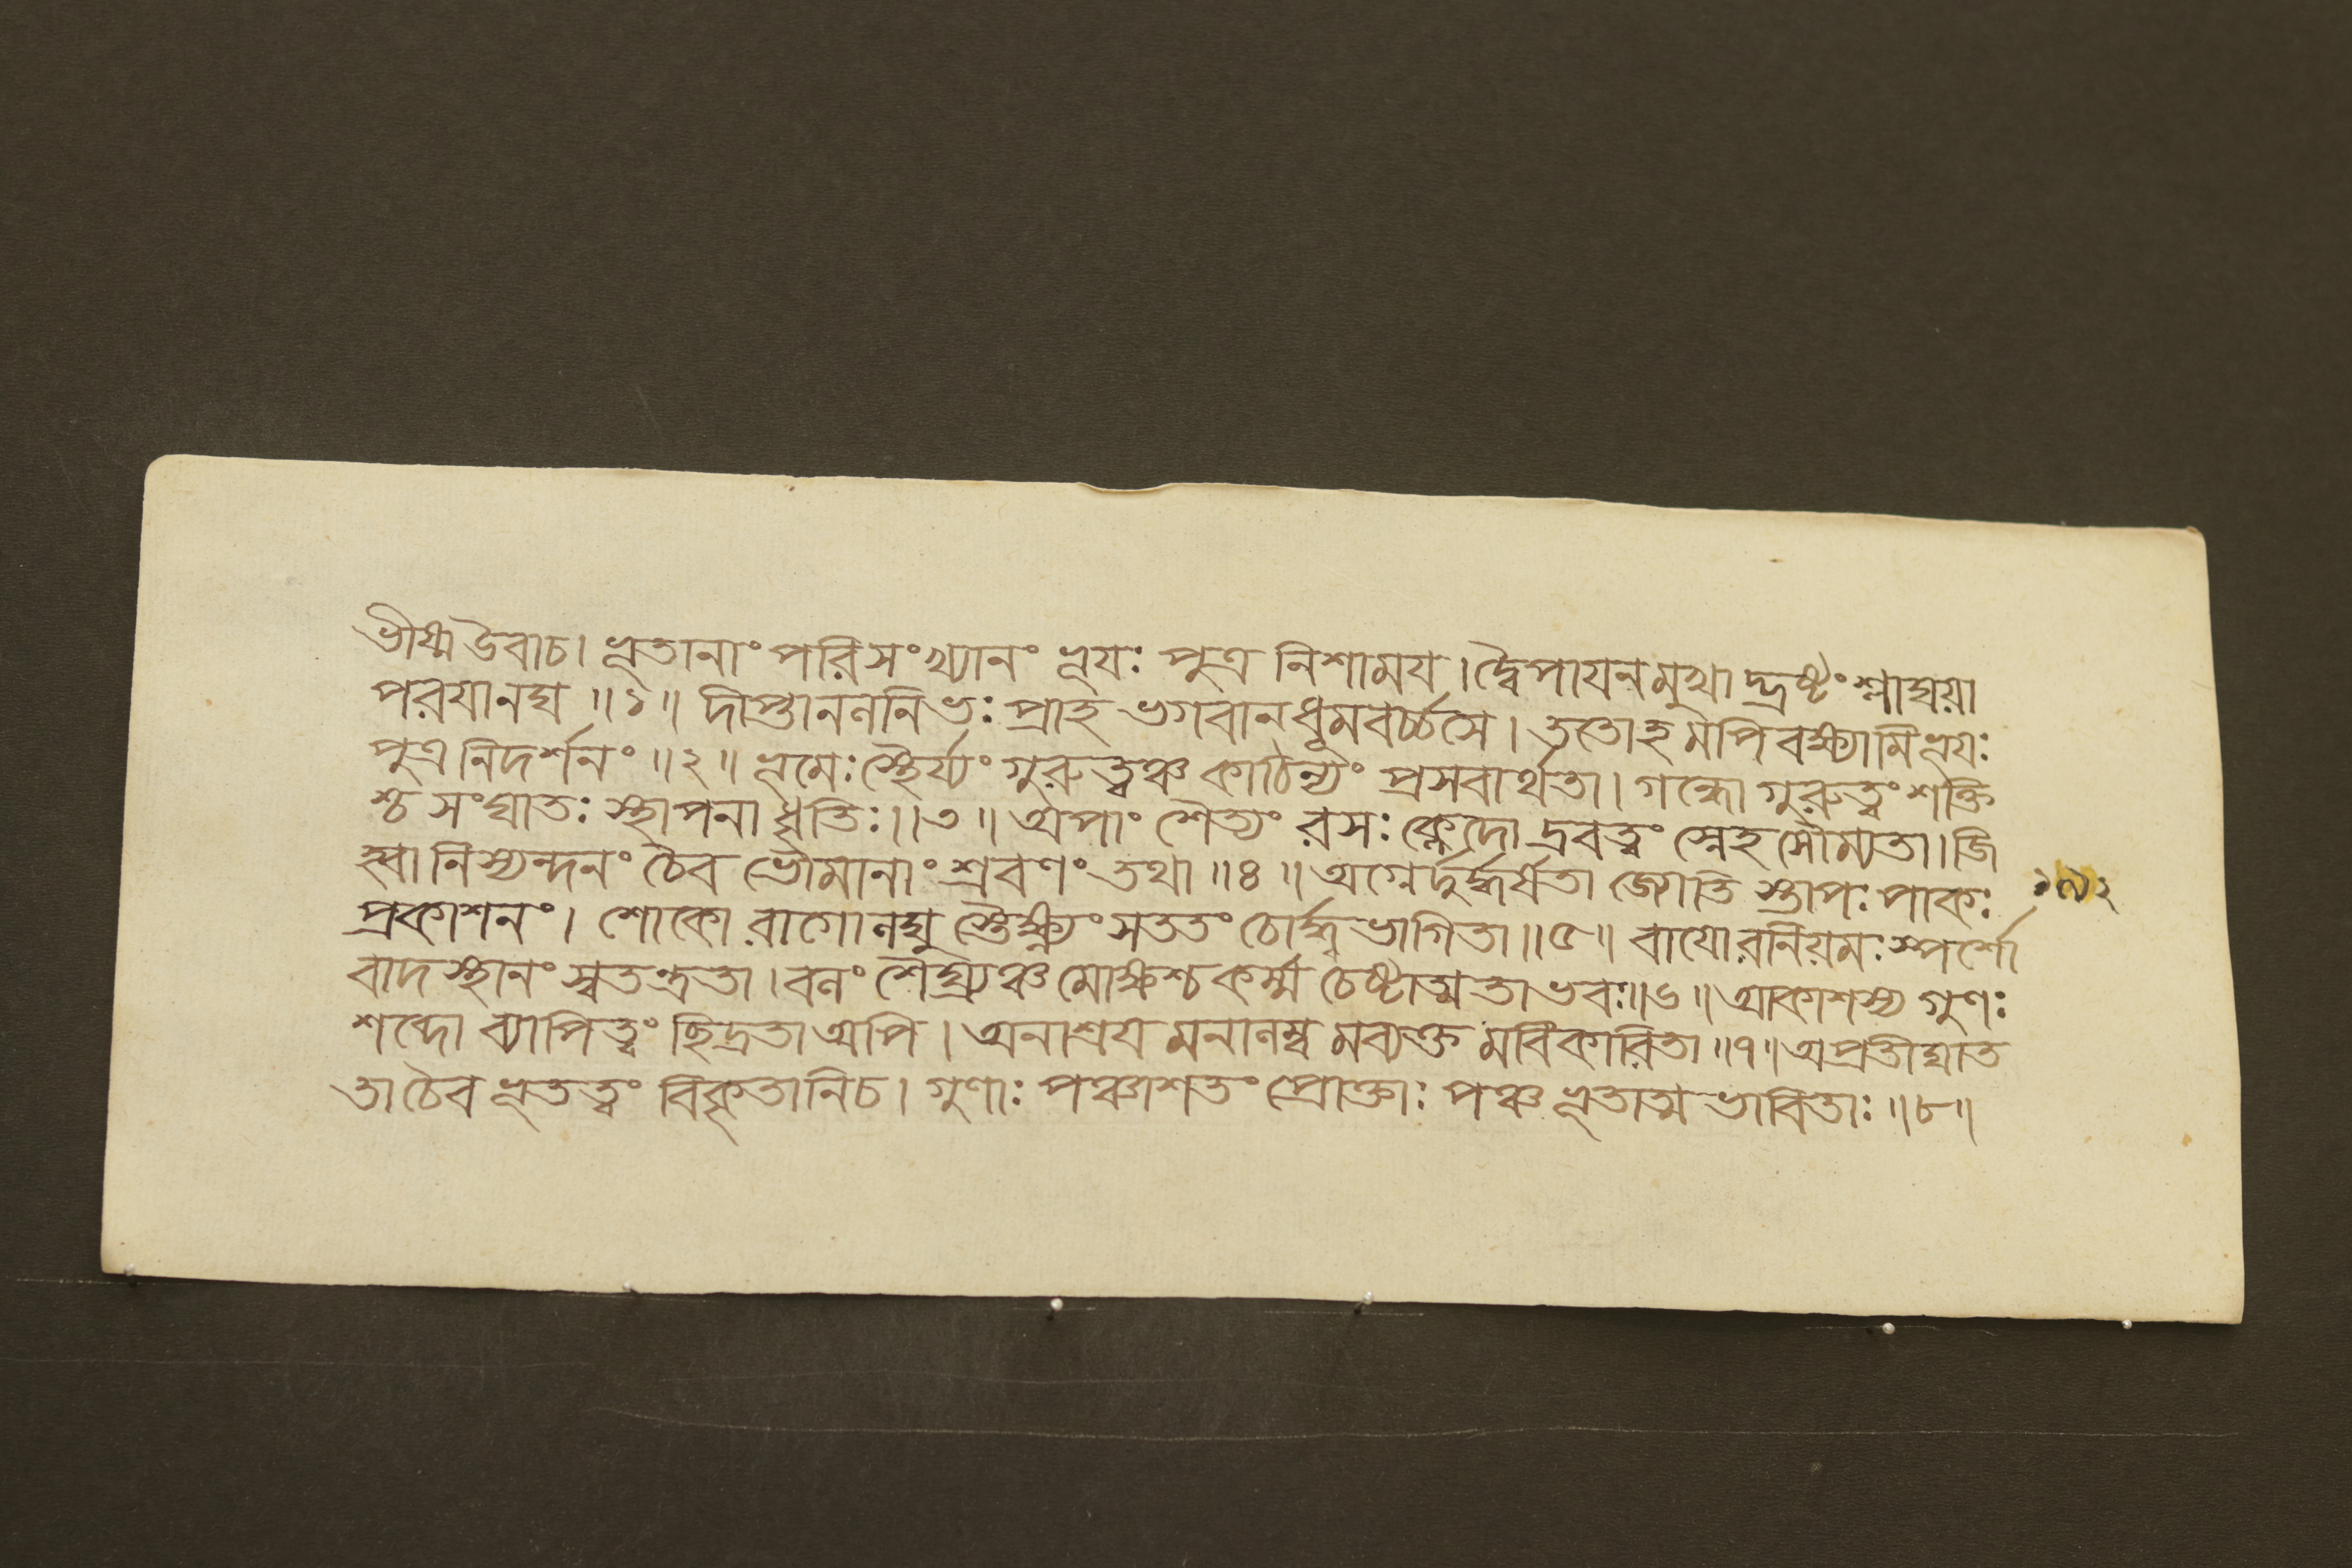 ভীষ্ম উবাচ। ভূতানাং পরিসংখ্যানং ভূযঃ পুত্র নিশাময। দ্বৈপাযনমুখাদ্ভ্রষ্টং শ্লাঘয়া
পরযানঘ ॥১॥ দীপ্তাননলনিভঃ প্রাহ ভগবানধূমবর্চ্চসে। ততোহমপি বক্ষ্যামি ভূযঃ
পুত্র নিদর্শনং ॥২॥ ভূমেঃ স্থৈর্য্যং গুরুত্বঞ্চ কাঠিন্যং প্রসবার্থতা। গন্ধো গুরুত্বং শক্তি
শ্চ সংঘাতঃ স্থাপনা ধৃতিঃ॥৩॥ অপাং শৈত্যং রসঃ ক্লেদো দ্রবত্বং স্নেহ সৌম্যতা। জি
হ্বা নিস্যন্দনং চৈব ভৌমানাং শ্রবণং তথা ॥৪॥ অগ্নের্দুর্দ্ধর্ষতা জ্যোতি স্তাপঃ পাকঃ
প্রকাশনং। শোকো রাগো লঘু স্তৈক্ষ্ণ্যং সততং চোর্দ্ধ্বভাগিতা॥৫॥ বাযোরনিয়মঃ স্পর্শো
বাদস্থানং স্বতন্ত্রতা। বলং শৈঘ্র্যঞ্চ মোক্ষশ্চ কর্ম্ম চেষ্টাত্মতা ভবঃ॥৬॥ আকাশস্য গুণঃ
শব্দো ব্যাপিত্বং ছিদ্রতা অপি। অনাশ্রয মনালম্ব মব্যক্ত মবিকারিতা ॥৭॥ অপ্রতীঘাত
তা চৈব ভূতত্বং বিকৃতানি চ। গুণাঃ পঞ্চাশতং প্রোক্তাঃ পঞ্চ ভূতাত্ম ভাবিতাঃ ॥৮॥